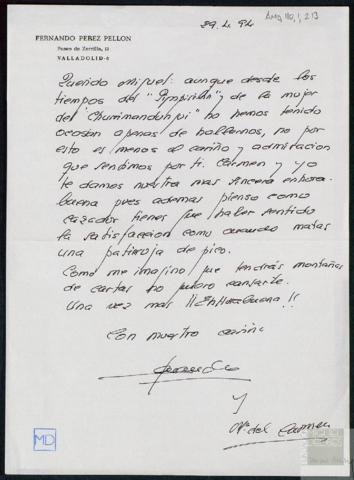 29.4.94
AMD,110,1,213
FERNANDO PEREZ PELLON
Paseo de Zorrilla, 12
VALLADOLID-6
Querido Miguel: aunque desde los
tiempos del "Pimpirilin" y de la mujer
del "Churimandunqui" no hemos tenido
ocasión apenas de hallarnos, no por
esto es menos el cariño y admiracion
que sentimos por ti. Carmen y yo
te damos nuestra mas sincera enhora-
buena pues ademas pienso como
cazador tienes que haber sentido
la satisfaccion como cuando matas
una patirroja de pico.
Como me imagino que tendrás montañas
de cartas no quiero cansarte.
Una vez mas !! Enhorabuena !!
Con nuestro cariño
Fernando
y
Mª del Carmen
MD